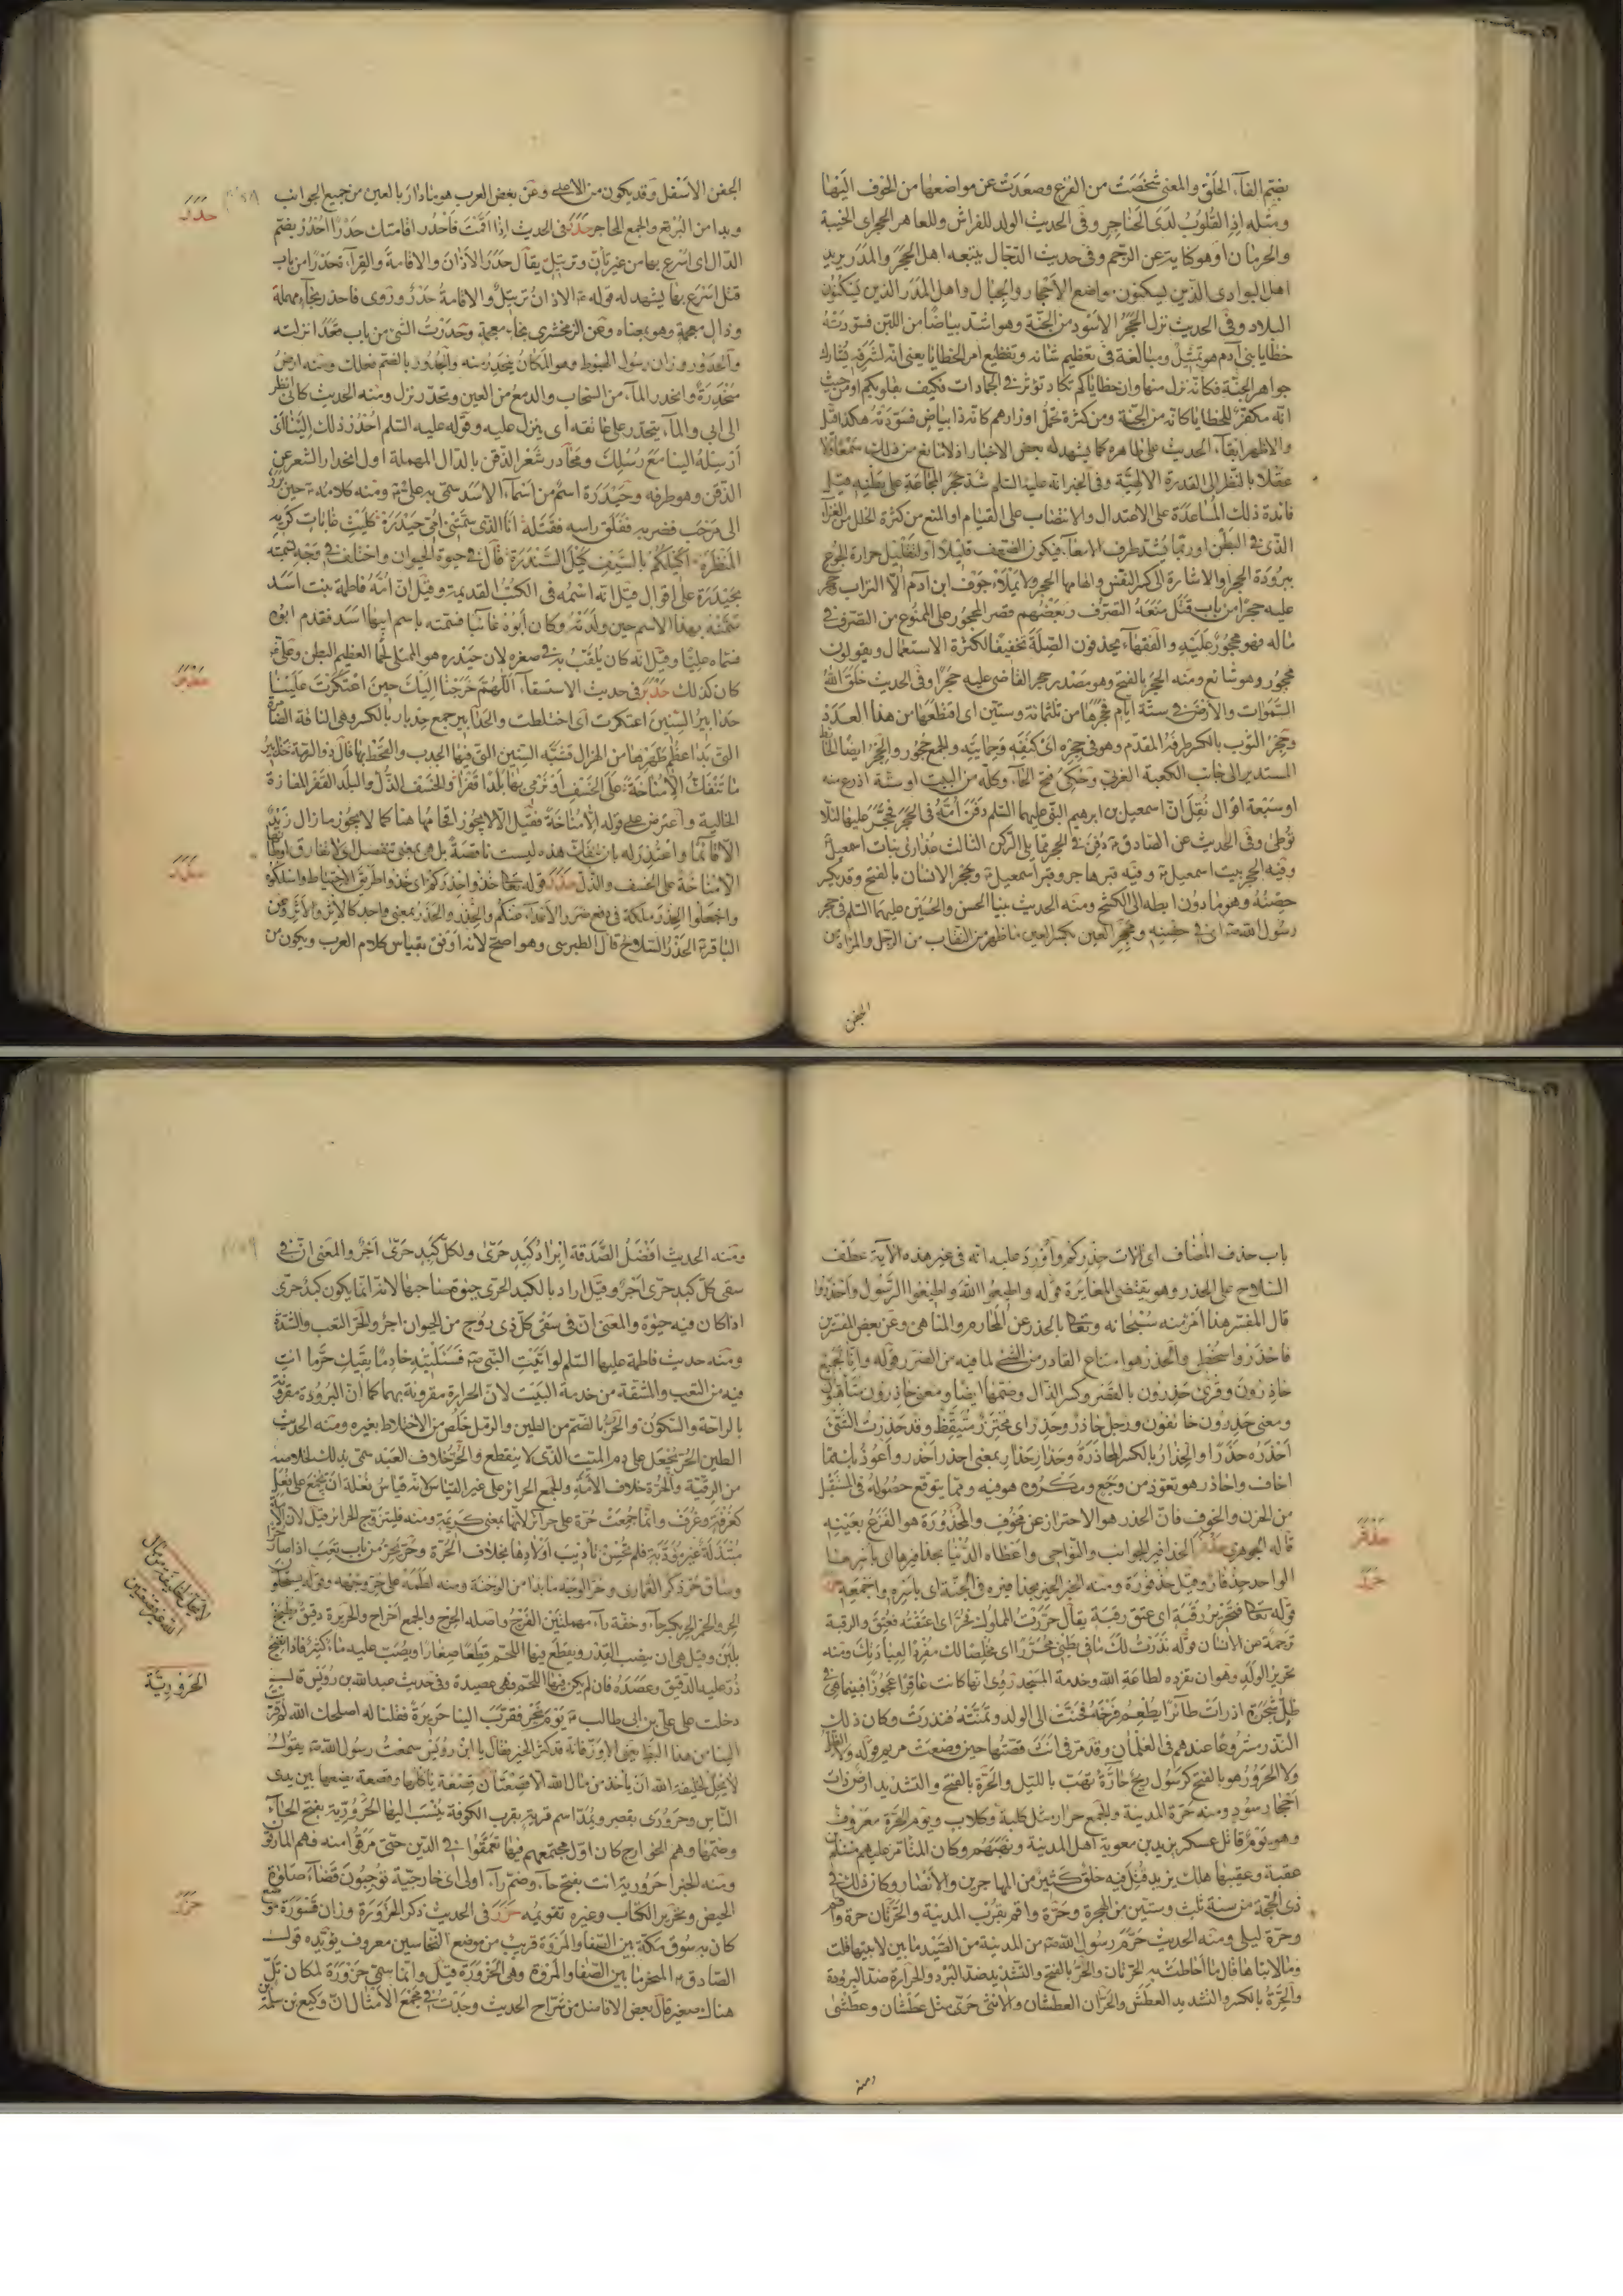 بضم الفاء الحلق والمعنى شخصت من الفزع وصعدت عن مواضعها من الخوف اليها
ومثله اذ القلوب لدى الحناجر وفى الحديث الولد للفراش وللعاهر الحجر اى الخيبة
والحرمان او هو كناية عن الرجم وفى حديث الدجال يتبعه اهل الحجر والمدر يريد
اهل البوادى الذين يسكنون مواضع الأحجار والجبال واهل المدر الذين يسكنون
البلاد وفى الحديث نزل الحجر الأسود من الجنة وهو اشد بياضًا من اللبن فسودته
خطايا بنى آدم هو تمثيل ومبالغة فى تعظيم شانه وتفظيع امر الخطايا يعنى انه لشرفه يشارك
جواهر الجنة فكانه نزل منها وان خطاياكم تكاد تؤثر فى الجمادات فكيف بقلوبكم او من حيث
انه مكفر للخطايا كانه من الجنة ومن كثرة تحمل اوزارهم كانه ذا بياض فسودته هكذا قيل
والاظهر ابقاء الحديث على ظاهره كما يشهد له بعض الاخبار اذ لا مانع من ذلك سمعًا ولا
عقلا بالنظر الى القدرة الالهية وفى الخبر انه عليه السلم شد حجر المجاعة على بطنه قيل
فائدة ذلك المساعدة على الاعتدال والانتصاب على القيام او المنع من كثرة التحلل من الغذاء
الذى فى البطن او ربما يشد طرف الامعاء فيكون الضعف قليلًا او لتقليل حرارة الجوع
ببرودة الحجر او الاشارة الى كسر النفس والقامها الحجر ولا يملأ جوف ابن آدم الا التراب حجر
عليه حجرًا من باب قتل منعه التصرف وبعضهم قصر المحجور على الممنوع من التصرف فى
ماله فهو محجور عليه والفقهاء يحذفون الصلة تخفيفًا لكثرة الاستعمال ويقولون
محجور وهو شائع ومنه الحجر بالفتح وهو مصدر حجر القاضى عليه حجرًا وفى الحديث خلق الله
السموات والأرض فى ستة ايام فحجرها من ثلثمائة وستين اى اقتطعها من هذا العدد
وحجر الثوب بالكسر طرفه المقدم وهو فى حجره اى كنفه وحمايته والجمع حجور والحجر ايضا الحائط
المستدير الى جانب الكعبة الغربى وحكى فتح الحاء وكله من البيت او ستة اذرع منه
او سبعة اقوال نقل ان اسمعيل بن ابرهيم النبى عليهما السلم دفن امه فى الحجر فحجر عليها لئلا
توطئ وفى الحديث عن الصادق ع دفن فى الحجر مما يلى الركن الثالث عذارى بنات اسمعيل
وفيه الحجر بيت اسمعيل ع وفيه قبر هاجر وقبر اسمعيل ع وحجر الانسان بالفتح وقد يكسر
حضنه وهو ما دون ابطه الى الكشح ومنه الحديث بينا الحسن والحسين عليهما السلم فى حجر
رسول الله ص اى فى حضنه ومحجر العين بكسر العين ما ظهر من النقاب من الرجل والمراة من
الجفن
الجفن الأسفل وقد يكون من الاعلى وعن بعض العرب هو ما دار بالعين من جميع الجوانب
وبدا من البرقع والجمع المحاجر حدر فى الحديث اذا اقمت فاحدر اقامتك حدرًا احدر بضم
الدال اى اسرع بها من غير تأن وترتيل يقال حدر الأذان والاقامة والقراءة تحدرًا من باب
قتل اسرع بها يشهد له قوله ع الاذان ترتيل والاقامة حدر وروى فاحذر بحاء مهملة
وذال معجمة وهو بمعناه وعن الزمخشرى بخاء معجمة وحدرت الشئ من باب قعد انزلته
والحدور وزان رسول الهبوط وهو المكان ينحدر منه والحدور بالضم فعلك ومنه ارض
منحدرة وانحدر الماء من السحاب والدمع من العين وتحدر نزل ومنه الحديث كانى انظر
الى ابى والماء يتحدر على عانقه اى ينزل عليه وقوله عليه السلم احدر ذلك الينا اى
أرسله الينا مع رسلك ومحادر شعر الذقن بالدال المهملة اول انحدار الشعر عن
الذقن وهو طرفه وحيدرة اسم من اسماء الأسد سمى به على ع ومنه كلامه ع حين برز
الى مرحب فضربه ففلق راسه فقتله انا الذى سمتنى امى حيدرة كليث غابات كريه
المنظرة اكيلكم بالسيف كيل السندرة قال فى حيوة الحيوان واختلف فى وجه تسميته
بحيدرة على اقوال قيل انه اسمه فى الكتب القديمة وقيل ان امه فاطمة بنت اسد
سمته بهذا الاسم حين ولدته وكان ابوه غائبا فسمته باسم ابيها اسد فقدم ابوه
فسماه عليًا وقيل انه كان يلقب به فى صغره لان حيدره هو الممتلى لحما العظيم البطن وعلى ع
كان كذلك حدبر فى حديث الاستسقاء اللهم خرجنا اليك حين اعتكرت علينا
حدابير السنين اعتكرت اى اختلطت والحدابير جمع حدبار بالكسر وهى الناقة الضامرة
التى بدا عظم ظهرها من الهزال فشبه السنين التى فيها الجدب والقحط بها قال ذو الرمة حدابير
ما تنفك الا مناخة على الخسف او نرمى بها بلدا قفرا والخسف الذل والبلد القفر المفازة
الخالية واعترض على قوله الا مناخة فقيل الا لا يجوز اقحامها هنا كما لا يجوز ما زال زيد
الا قائما واعتذر له بان تنفك هذه ليست ناقصة بل هى بمعنى تنفصل اى لا تفارق اوطانها
الا مناخة على الخسف والذل حذر قوله تعالى خذوا حذركم اى خذوا طريق الاحتياط واسلكوه
واجعلوا الحذر ملكة فى دفع ضرر الأعداء عنكم والحذر والحذر بمعنى واحد كالاثر والأثر وعن
الباقر ع الحذر السلاح قال الطبرسى وهو اصح لأنه اوفق بقياس كلام العرب ويكون من
حدر
حدبر
حذر
باب حذف المضاف اى آلات حذركم وأورد عليه انه فى غير هذه الآية عطف
السلاح على الحذر وهو يقتضى المغايرة قوله واطيعوا الله واطيعوا الرسول واحذروا
قال المفسر هذا امر منه سبحانه وتعالى بالحذر عن المحارم والمناهى وعن بعض المفسرين
فاحذروا سخطى والحذر هو امتناع القادر من الشئ لما فيه من الضرر قوله وانا لجميع
حاذرون وقرئ حذرون بالقصر وكسر الذال وضمها ايضا ومعنى حاذرون متأهبون
ومعنى حذرون خائفون ورجل حاذر وحذر اى محترز متيقظ وقد حذرت الشئ
احذره حذرًا والحذار بالكسر المحاذرة وحذار حذار بمعنى احذر احذر واعوذ بك مما
اخاف واحاذر هو تعوذ من وجع ومكروه هو فيه ومما يتوقع حصوله فى المستقبل
من الحزن والخوف فان الحذر هو الاحتراز عن مخوف والمحذورة هو الفزع بعينه
قاله الجوهرى حذفر الحذافير الجوانب والنواحى واعطاه الدنيا بحذافيرها اى باسرها
الواحد حذفار وقيل حذفورة ومنه الخبر الخير بحذافيره فى الجنة اى باسره واجمعه حرر
قوله تعالى فتحرير رقبة اى عتق رقبة يقال حررت المملوك فحر اى اعتقته فعتق والرقبة
ترجمة عن الانسان قوله نذرت لك ما فى بطنى محررا اى مخلصا لك مفردا لعبادتك ومنه
تحرير الولد وهو ان يفرده لطاعة الله وخدمة المسجد روى انها كانت عاقرا عجوزا فبينما هى فى
ظل شجرة اذ رات طائرا يطعم فرخه فحنت الى الولد وتمنته فنذرت وكان ذلك
النذر مشروعًا عندهم فى الغلمان وقد مر فى انث قصتها حين وضعت مريم قوله ولا الظل
ولا الحرور هو بالفتح كرسول ريح حارة تهب بالليل والحرة بالفتح والتشديد ارض ذات
احجار سود ومنه حرة المدينة والجمع حرار مثل كلبة وكلاب ويوم الحرة معروف
وهو يوم قاتل عسكر يزيد بن معوية اهل المدينة ونهبهم وكان المتأمر عليهم مسلم بن
عقبة وعقيبها هلك يزيد قتل فيه خلق كثير من المهاجرين والأنصار وكان ذلك فى
ذى الحجة من سنة ثلث وستين من الهجرة وحرة واقم بقرب المدينة والحرتان حرة واقم
وحرة ليلى ومنه الحديث حرم رسول الله ص من المدينة من الصيد ما بين لابتيها قلت
وما لابتاها قال ما احاطت به الحرتان والحر بالفتح والتشديد ضد البرد والحرارة ضد البرودة
والحرة بالكسر والتشديد العطش والحران العطشان والأنثى حرى مثل عطشان وعطشى
حذفر
حرر
ومنه
ومنه الحديث افضل الصدقة ابراد كبد حرى ولكل كبد حرى اجر والمعنى ان فى
سقى كل كبد حرى اجر وقيل اراد بالكبد الحرى حيوة صاحبها لانه انما يكون كبد حرى
اذا كان فيه حيوة والمعنى ان فى سقى كل ذى روح من الحيوان اجر والحر التعب والشدة
ومنه حديث فاطمة عليها السلم لو اتيت النبى ص فسئلتيه خادمًا يقيك حر ما انت
فيه من التعب والمشقة من خدمة البيت لان الحرارة مقرونة بهما كما ان البرودة مقرونة
بالراحة والسكون والحر بالضم من الطين والرمل خلص من الاختلاط بغيره ومنه الحديث
الطين الحر يجعل على دم الميت الذى لا ينقطع والحر خلاف العبد سمى بذلك لخلاصه
من الرقية والحرة خلاف الأمة والجمع الحرائر على غير القياس لانه قياس فعلة ان يجمع على فعل
كغرفة وغرف وانما جمعت حرة على حرائر لانها بمعنى كريمة ومنه فليتزوج الحرائر قيل لان الامة
مبتذلة غير مؤدبة فلم تحسن تأديب اولادها بخلاف الحرة وحر يحر من باب تعب اذا صار حرا
وساق حر ذكر القمارى وحر الوجه ما بدا من الوجنة ومنه لطمه على حر وجهه وقوله يستحلون
الحر والخمر الحر بكسر حاء وخفة راء مهملتين الفرج واصله الحرح والجمع احراح والحريرة دقيق يطبخ
بلبن وقيل هى ان ينصب القدر ويقطع فيها اللحم قطعًا صغارا ويصب عليه ماء كثير فاذا نضج
ذر عليه الدقيق وعصد فان لم يكن فيها اللحم فهى عصيدة وفى حديث عبد الله بن رويس
دخلت على على بن ابى طالب ع يوم نحر فقرب الينا حريرة فقلنا له اصلحك الله لو قربت
الينا من هذا البط يعنى الاوز فانه قد كثر الخير فقال يا ابن رويس سمعت رسول الله ص يقول
لا يحل لخليفة الله ان يأخذ من مال الله الا قصعتان قصعة يأكلها وقصعة يضعها بين يدى
الناس وحرورى بقصر ويمد اسم قرية بقرب الكوفة ينسب اليها الحرورية بفتح الحاء
وضمها وهم الخوارج كان اول مجتمعهم فيها تعمقوا فى الدين حتى مرقوا منه فهم المارقون
ومنه الخبر احرورية انت بفتح حاء وضم راء اولى اى خارجية توجبون قضاء صلوة
الحيض وتحرير الكتاب وغيره تقويمه حزر فى الحديث ذكر الحزورة وزان قسورة موضع
كان به سوق مكة بين الصفا والمروة قريب من موضع النخاسين معروف يؤيده قول
الصادق ع المنحر ما بين الصفا والمروة وهى الحزورة قيل وانما سمى حزورة لمكان تل
هناك صغير قال بعض الافاضل من شراح الحديث وجدت فى مجمع الأمثال ان وكيع بن سلمة
الحرورية
حزر